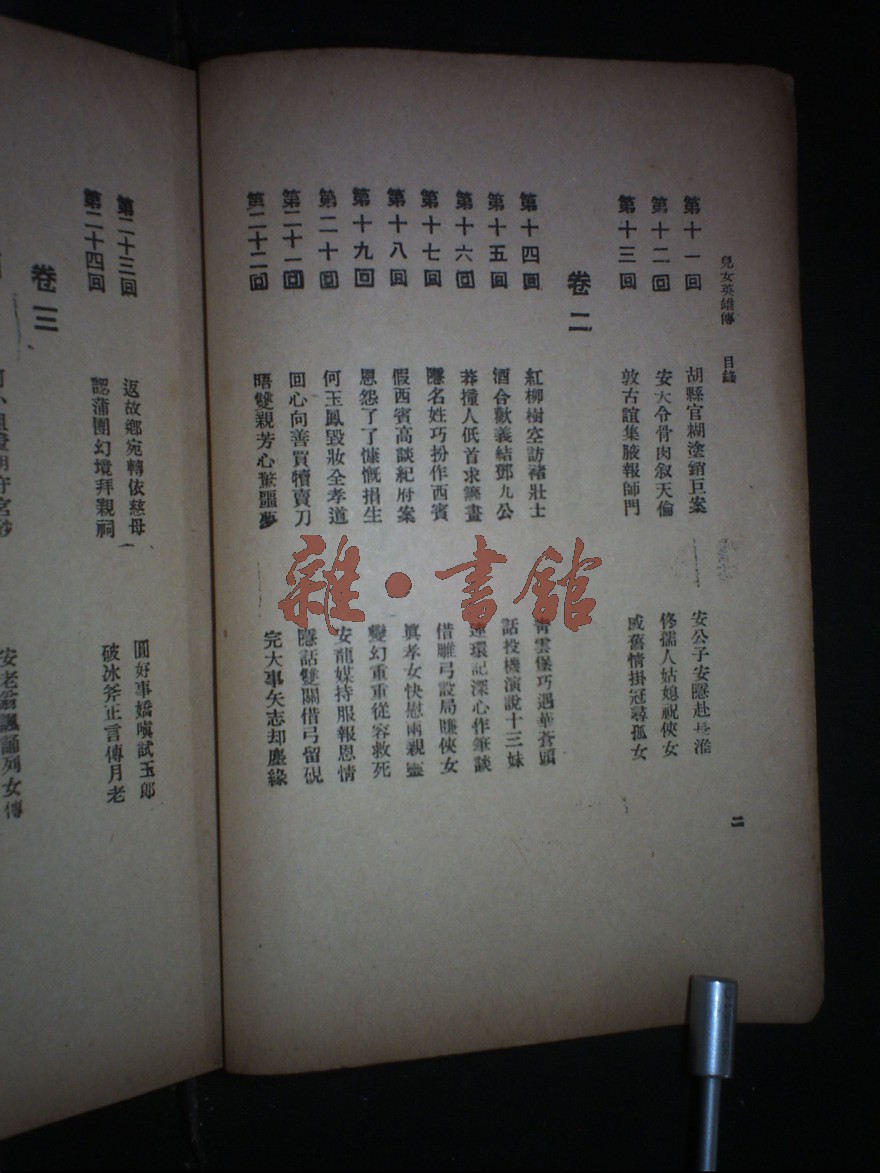 兒女英雄傳 目錄 二
第十一回 胡縣官糊塗銷巨案 安公子安隱赴長淮
第十二回 安大令骨肉敘天倫 佟孺人姑媳祝俠女
第十三回 敦古誼集腋報師門 感舊情掛冠尋孤女
卷二
第十四回 紅柳樹空訪褚壯士 青雲堡巧遇華蒼頭
第十五回 酒合歡義結鄧九公 話投機演說十三妹
第十六回 莽撞人低首求籌畫 連環記深心作筆談
第十七回 隱名姓巧扮作西賓 借雕弓設局賺俠女
第十八回 假西賓高談紀府案 眞孝女快慰兩親靈
第十九回 恩怨了了慷慨捐生 變幻重重從容救死
第二十回 何玉鳳毀妝全孝道 安龍媒持服報恩情
第二十一回 回心向善買犢賣刀 隱話雙關借弓留硯
第二十二回 晤雙親芳心驚噩夢 完大事矢志却塵緣
第二十三回 返故鄉宛轉依慈母 圓好事嬌嗔試玉郎
第二十四回 認蒲團幻境拜親祠 破冰斧正言傳月老
卷三
安老翁諷誦列女傳
雜·書館